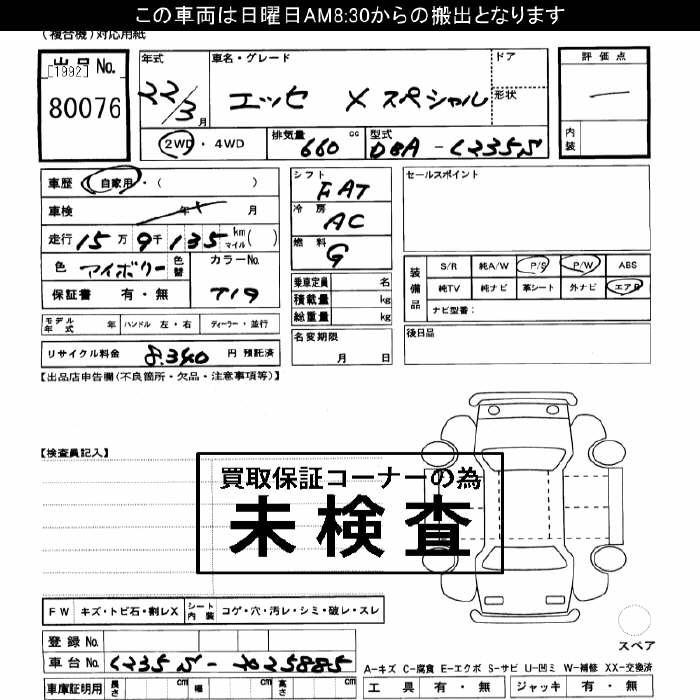 この車両は日曜日AM8:30からの搬出となります
(複合機)対応用紙
出品 No.
[1992]
80076
年式
22/3 月
車名・グレード
エッセ X スペシャル
ドア
形状
評価点
―
内装
2WD・4WD
排気量 660 cc
型式 DBA-L235S
車歴 自家用・( )
車検 年 月
走行 15万9千135 km マイル( )
色 アイボリー 色替
カラーNo. T19
保証書 有・無
シフト FAT
冷房 AC
燃料 G
乗車定員 名
積載量 kg
総重量 kg
セールスポイント
装備品
S/R 純A/W P/S P/W ABS
純TV 純ナビ 革シート 外ナビ エアB
ナビ型番:
モデル年式 年 ハンドル 左・右 ディーラー・並行
リサイクル料金 8,340 円 預託済
名変期限
月 日
後日品
【出品店申告欄(不良箇所・欠品・注意事項等)】
【検査員記入】
買取保証コーナーの為
未検査
FW キズ・トビ石・割レX シート内装 コゲ・穴・汚レ・シミ・破レ・スレ
スペア
登録No.
車台No. L235S-2025885
A-キズ C-腐食 E-エクボ S-サビ U-凹ミ W-補修 XX-交換済
車庫証明用 長さ cm 幅 cm 高さ cm
工具 有・無 ジャッキ 有・無